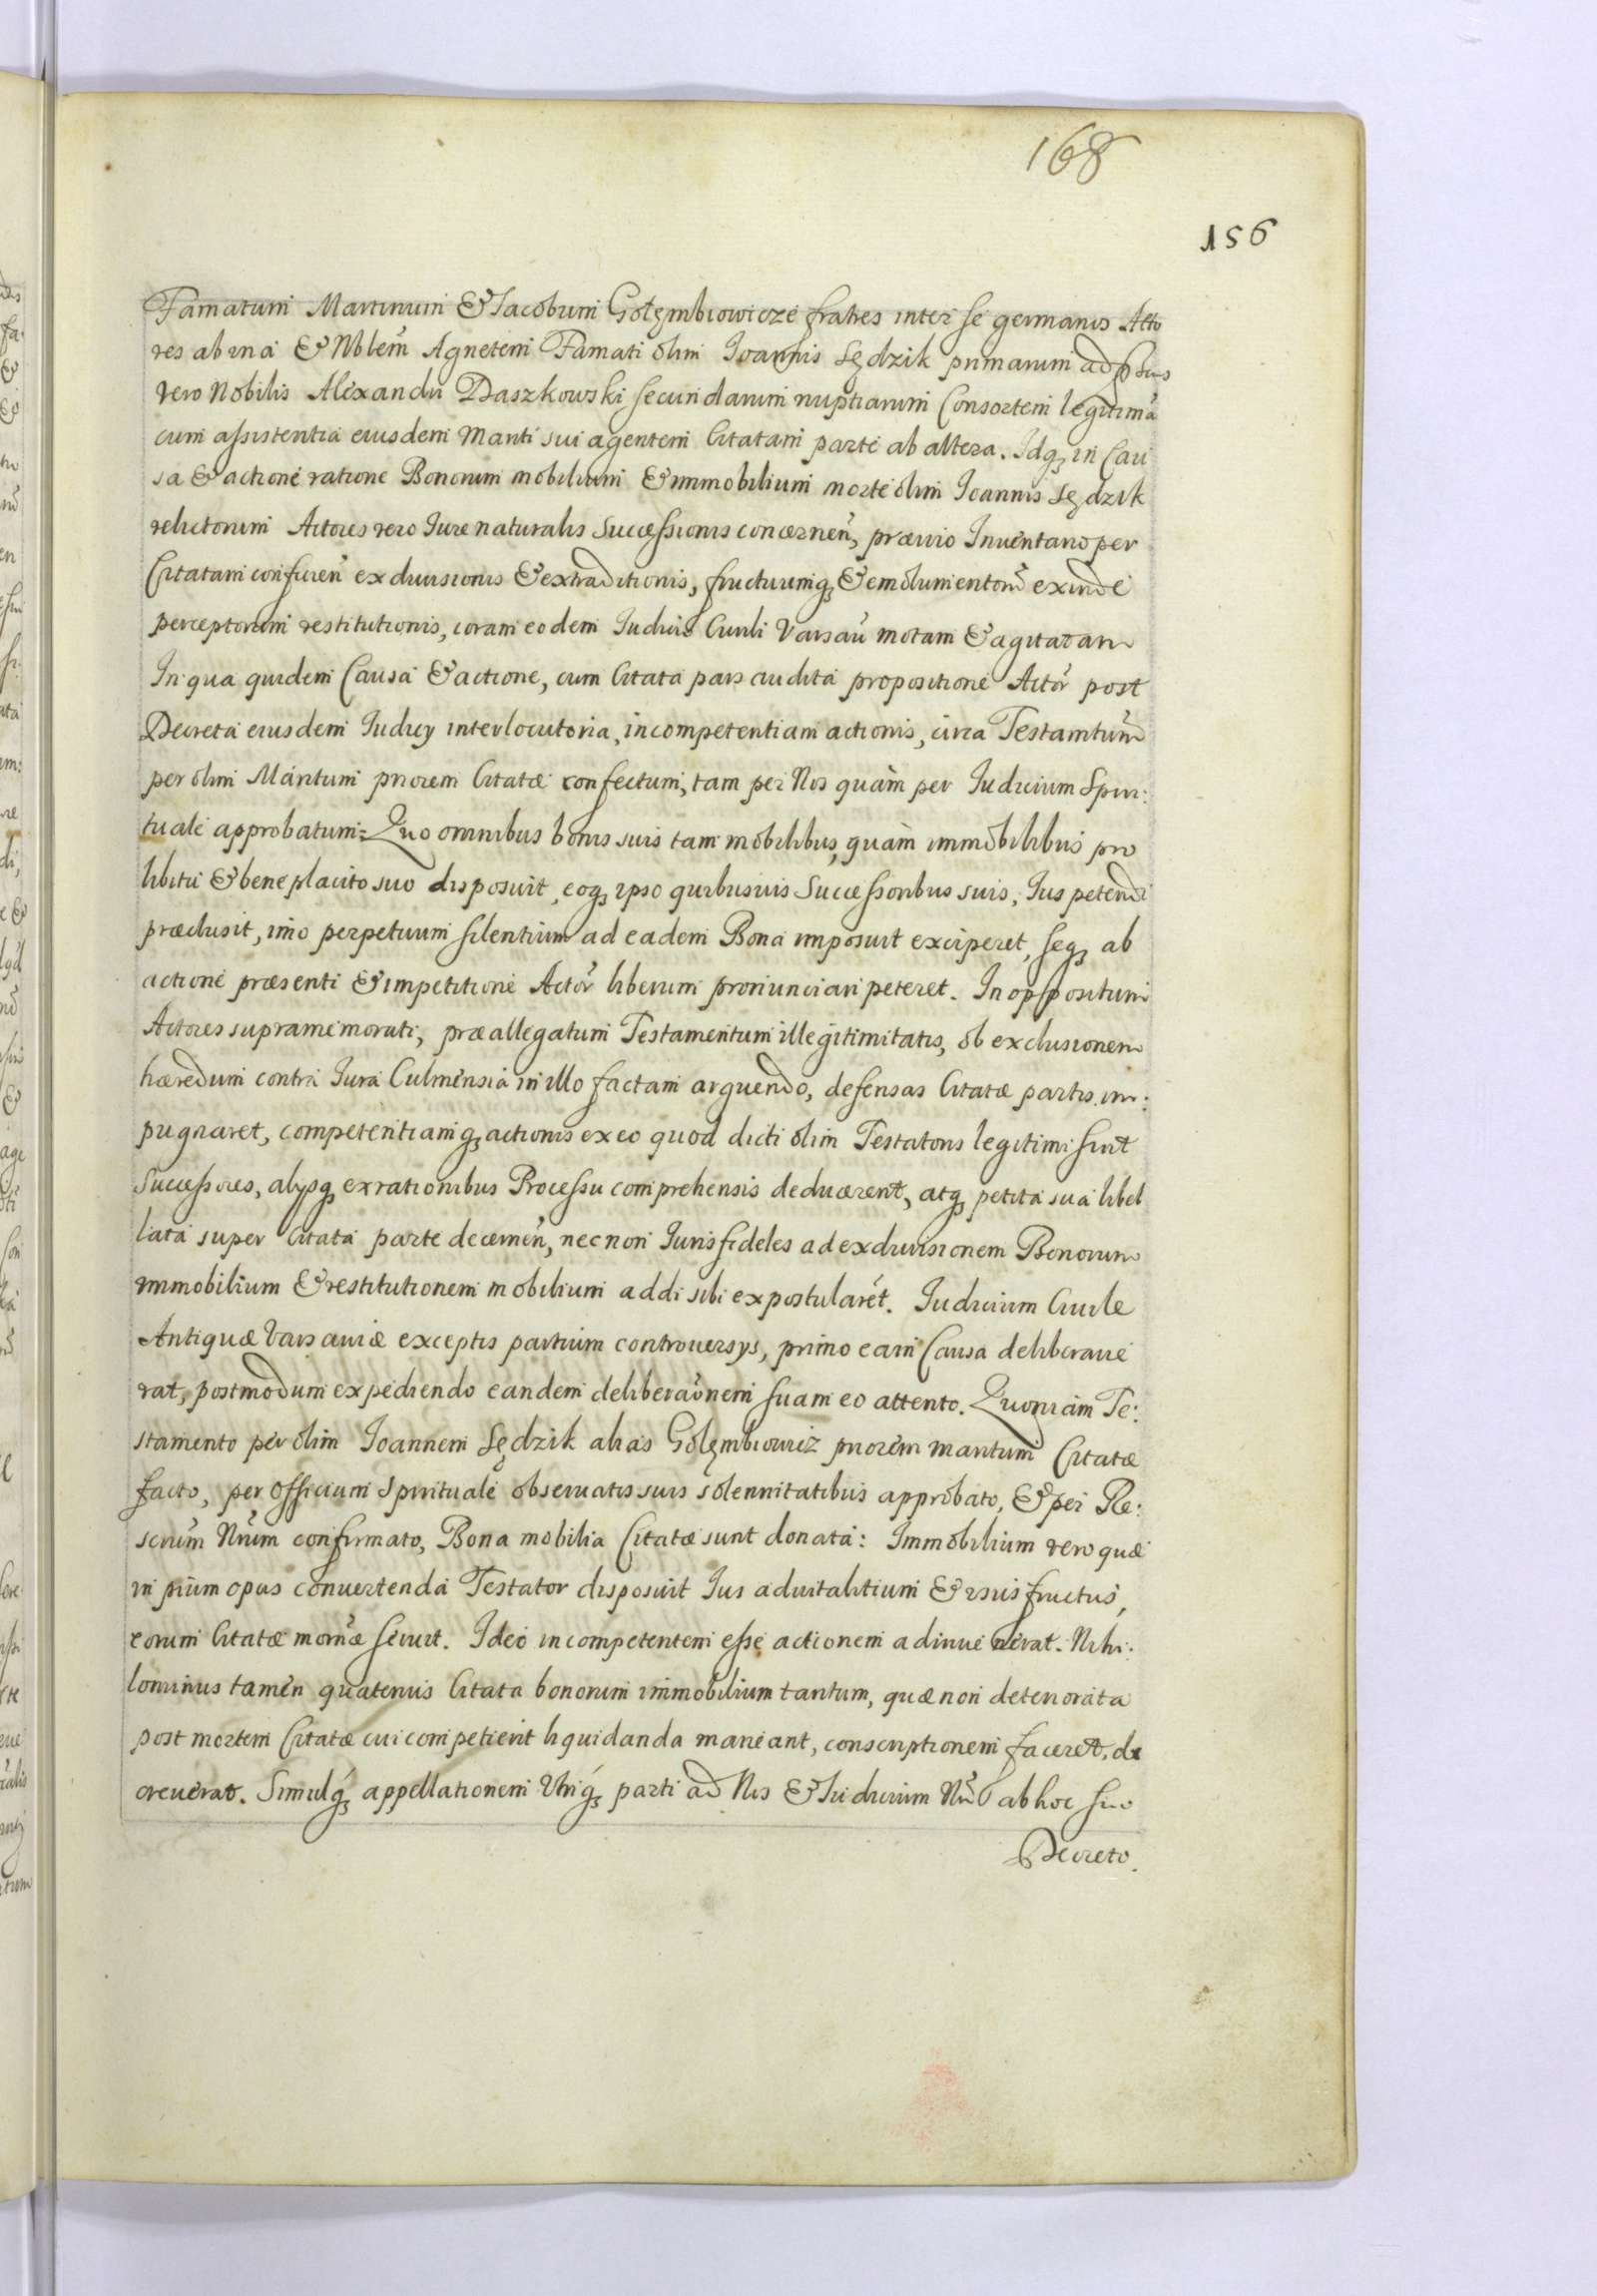 168
156
Famatum Martinum & Iacobum Gołęmbiowicze fratres inter se germanos Acto
res ab una & Nblem̃ Agnetem Famati olim Ioannis Sędzik primarum ad pñs
vero Nobilis Alexandri Daszkowski secundarum nuptiarum Consortem legitimã
cum assistentia eiusdem Mariti sui agentem Citatam parte ab altera. Idq; in Cau
sa & actione ratione Bonorum mobilium & immobilium morte olim Ioannis Sędzik
relictorum Actores vero Iure naturalis Successionis concernen̄, prævio Inventario per
Citatam conficien̄ exdivisionis & extraditionis, fructuumq; & emolumentorũ exinde
perceptorum restitutionis, coram eodem Iudicio Civili Varsav̄ motam & agitatam
In qua quidem Causa & actione, cum Citata pars audita propositione Actor̃ post
Decreta eiusdem Iudicy interlocutoria, incompetentiam actionis, circa Testamtũm
per olim Maritum priorem Citatæ confectum, tam per Nos quàm per Iudicium Spiri:
tuale approbatum: Quo omnibus bonis suis tam mobilibus, quàm immobilibus pro
libitu & beneplacito suo disposuit, eoq; ipso quibusuis Successoribus suis, Ius petendi
præclusit, imo perpetuum silentium ad eadem Bona imposuit exciperet, seq; ab
actione præsenti & impetitione Actor̃ liberum pronunciari peteret. In oppositum
Actores supramemorati, præallegatum Testamentum illegitimitatis, ob exclusionem
hæredum contra Iura Culmensia in illo factam arguendo, defensas Citatæ partis im:
pugnaret, competentiamq; actionis ex eo quod dicti olim Testatoris legitimi sint
Successores, alysq; ex rationibus Processu comprehensis deducerent, atq; petita sua libel
lata super Citata parte decernen̄, nec non Iuris fideles ad exdivisionem Bonorum
immobilium & restitutionem mobilium addi sibi expostularẽt. Iudicium Civile
Antiquæ Varsaviæ exceptis partium controversys, primo eam Causa deliberave
rat, postmodum expediendo eandem deliberaõnem suam eo attento. Quoniam Te:
stamento per olim Ioannem Sędzik alias Gołęmbiowicz priorem maritum Citatæ
facto, per Officium Spirituale observatis suis solennitatibus approbato, & per Re:
scrm̃ Nrũm confirmato, Bona mobilia Citatæ sunt donata: Immobilium vero quæ
in pium opus convertenda Testator disposuit Ius advitalitium & ususfructus,
eorum Citatæ mornæ̃ servit. Ideo incompetentem esse actionem adinvenerat. Nihi:
lominus tamen quatenus Citata bonorum immobilium tantum, quæ non deteriorata
post mortem Citatæ cui competierit liquidanda maneant, conscriptionem faceret, de
creverat. Simulq; appellationem Utriq; parti ad Nos & Iudicium Nrũ ab hoc suo
Decreto.